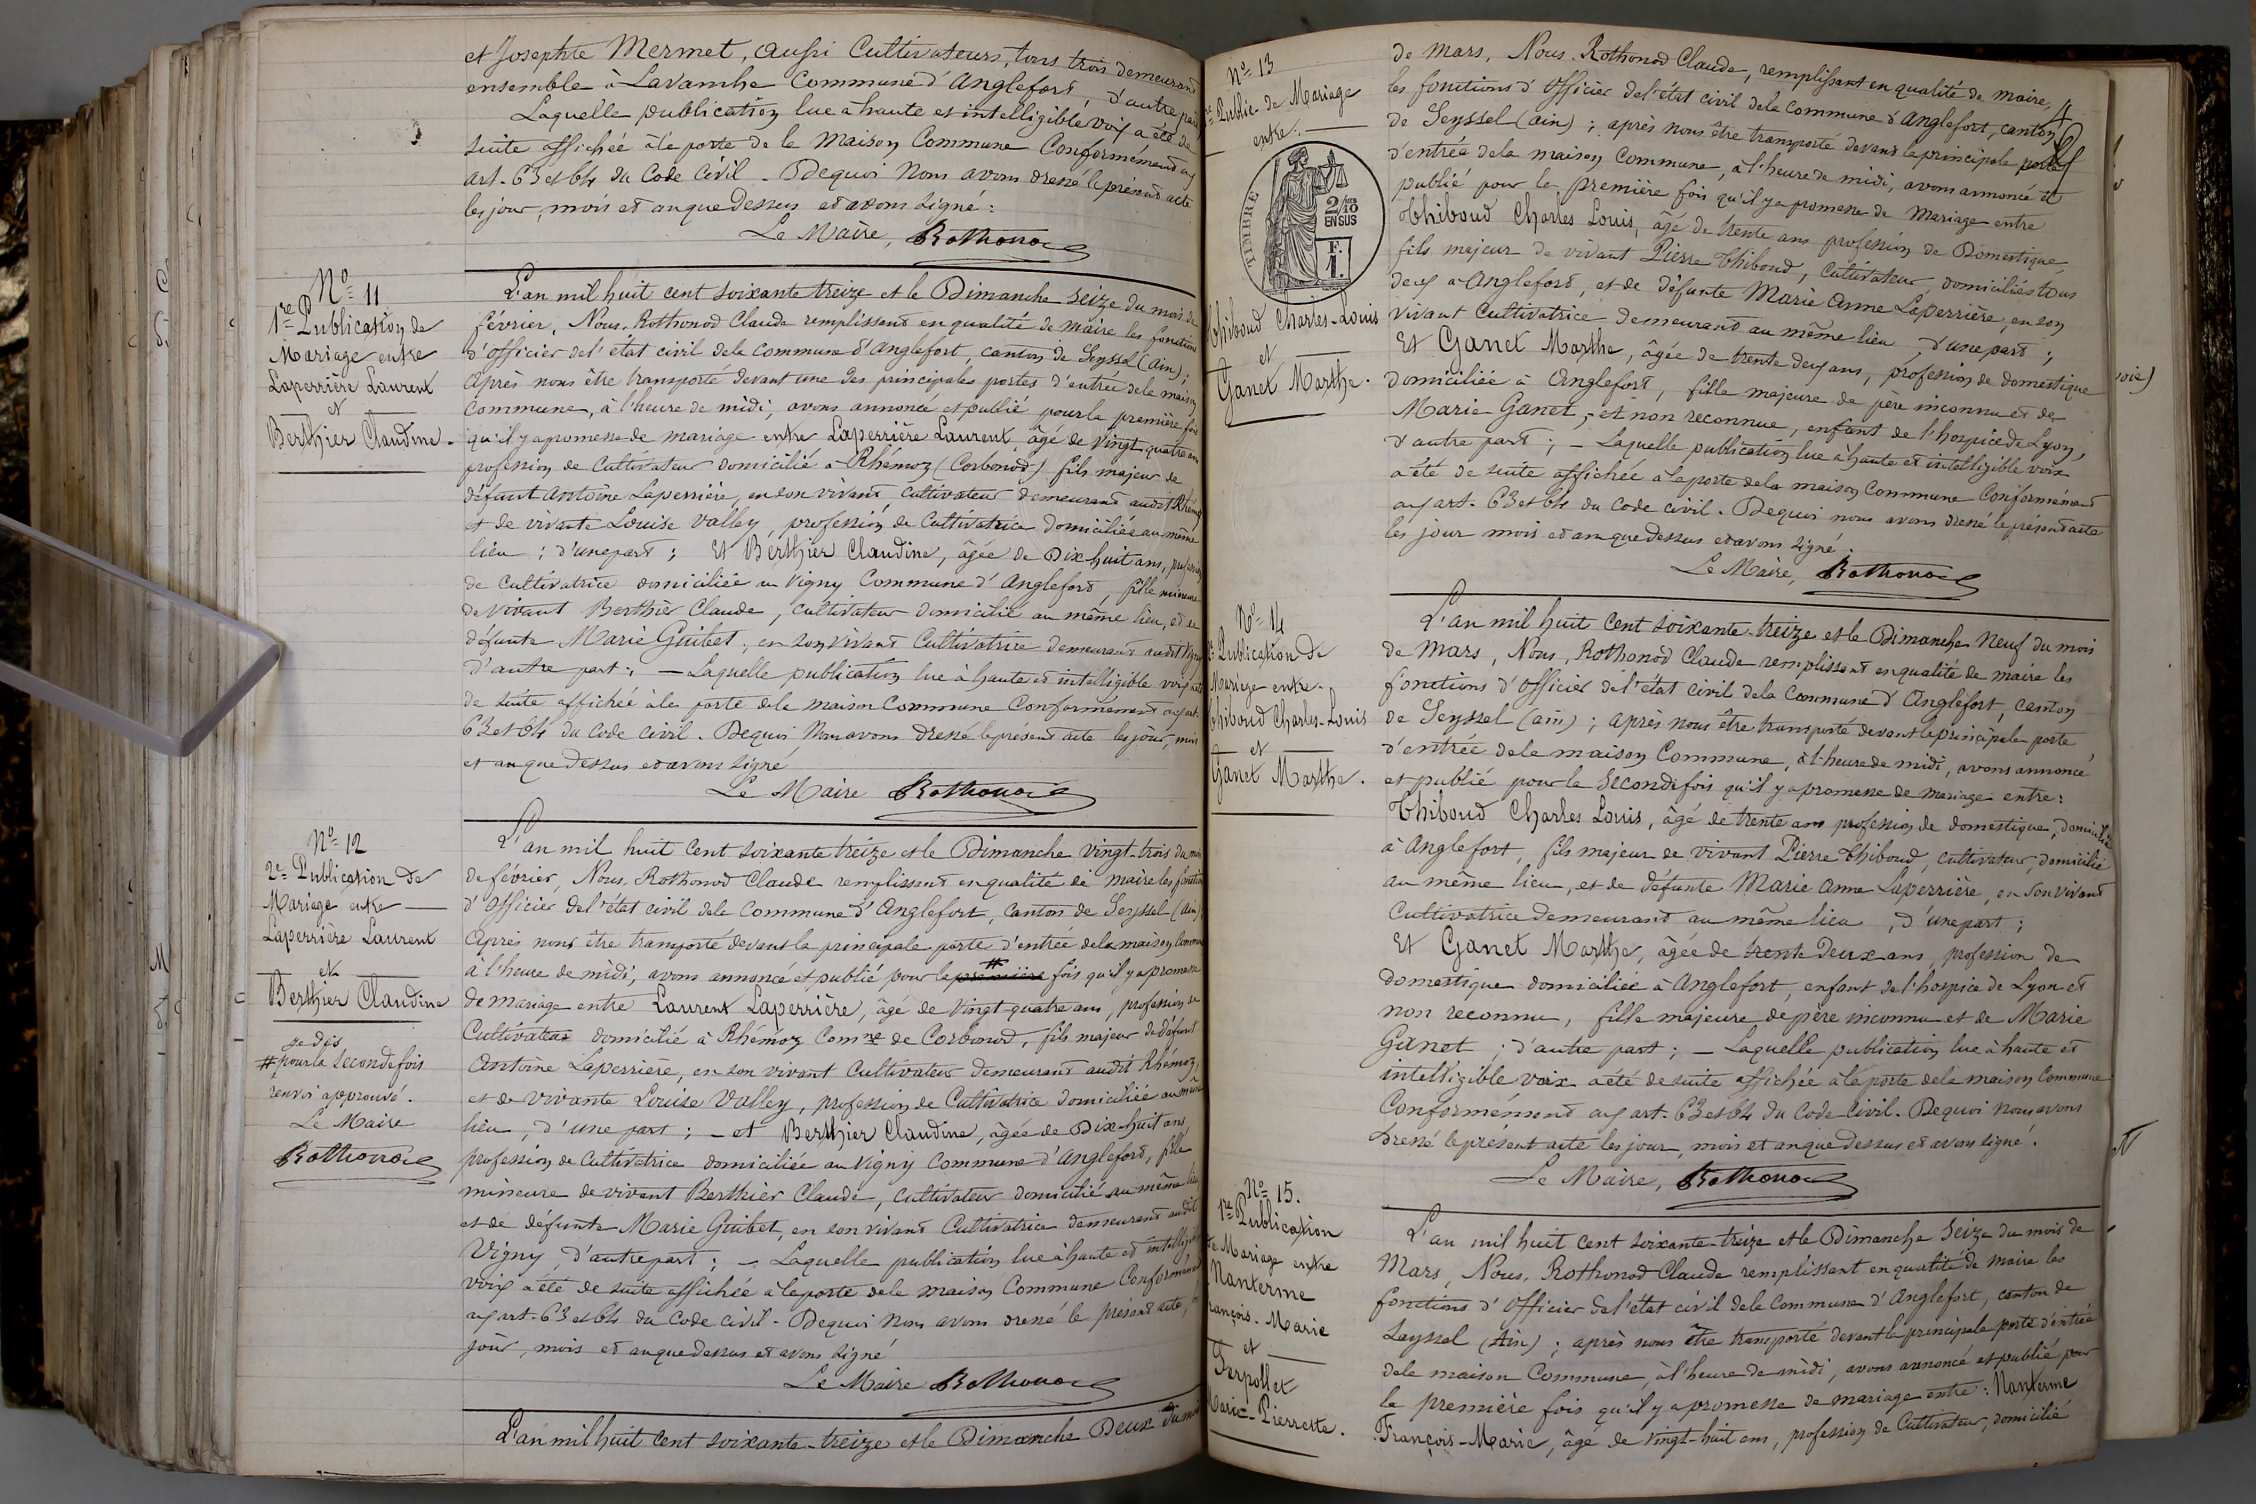 et Josephte Mermet, aussi Cultivateurs, tous trois demeurant
ensemble à Lavanche Commune d'Anglefort, d'autre part
Laquelle publication lue à haute et intelligible voix a été de
suite affichée à la porte de la Maison Commune Conformément aux
art. 63 et 64 du Code Civil. De quoi Nous avons dressé le présent acte
les jour, mois et an que dessus et avons signé :
Le Maire, Rothonod
No 11
1re Publication de
Mariage entre
Laperrière Laurent
et
Berthier Claudine.
L'an mil huit cent soixante treize et le Dimanche seize du mois de
février, Nous, Rothonod Claude remplissant en qualité de maire les fonctions
d'officier de l'état civil de la commune d'Anglefort, canton de Seyssel (Ain);
Après nous être transporté devant une des principales portes d'entrée de la maison
Commune, à l'heure de midi, avons annoncé et publié pour la première fois
qu'il y a promesse de mariage entre Laperrière Laurent, âgé de vingt quatre ans
profession de Cultivateur domicilié à Rhémoz (Corbonod) fils majeur de
défunt Antoine Laperrière, en son vivant cultivateur demeurant audit Rhémoz
et de vivante Louise Valley, profession de Cultivatrice domiciliée au même
lieu ; d'une part ; Et Berthier Claudine, âgée de Dix huit ans, profession
de cultivatrice domiciliée au Vigny Commune d'Anglefort, fille mineure
de vivant Berthier Claude, cultivateur domicilié au même lieu, et de
défunte Marie Guibet, en son vivant Cultivatrice demeurant audit Vigny
d'autre part ; — Laquelle publication lue à haute et intelligible voix a été
de suite affichée à la porte de la maison Commune Conformément aux art.
63 et 64 du Code Civil. De quoi Nous avons dressé le présent acte les jour, mois
et an que dessus et avons signé
Le Maire Rothonod
No 12
2e Publication de
Mariage entre
Laperrière Laurent
et
Berthier Claudine
je dis
# pour la seconde fois
renvoi approuvé.
Le Maire
Rothonod
L'an mil huit cent soixante treize et le Dimanche vingt-trois du mois
de février, Nous, Rothonod Claude remplissant en qualité de maire les fonctions
d'officier de l'état civil de la Commune d'Anglefort, canton de Seyssel (Ain)
Après nous être transporté devant la principale porte d'entrée de la maison Commune
à l'heure de midi, avons annoncé et publié pour la première # fois qu'il y a promesse
de mariage entre Laurent Laperrière, âgé de vingt quatre ans, profession de
Cultivateur domicilié à Rhémoz Comne de Corbonod, fils majeur de défunt
Antoine Laperrière, en son vivant cultivateur demeurant audit Rhémoz,
et de vivante Louise Valley, profession de Cultivatrice domiciliée au même
lieu, d'une part ; — et Berthier Claudine, âgée de Dix-huit ans,
profession de Cultivatrice domiciliée au Vigny Commune d'Anglefort, fille
mineure de vivant Berthier Claude, cultivateur domicilié au même lieu,
et de défunte Marie Guibet, en son vivant Cultivatrice demeurant audit
Vigny, d'autre part ; — Laquelle publication lue à haute et intelligible
voix a été de suite affichée à la porte de la maison Commune Conformément
aux art. 63 et 64 du Code civil. De quoi Nous avons dressé le présent acte,
jour, mois et an que dessus et avons signé
Le Maire Rothonod
L'an mil huit cent soixante-treize et le Dimanche Deux du mois
No 13
Public. de Mariage
entre
TIMBRE
2/10
EN SUS
F.
1.
Thiboud Charles-Louis
et
Ganet Marthe.
de mars, Nous, Rothonod Claude, remplissant en qualité de maire,
les fonctions d'officier de l'état civil de la commune d'Anglefort, canton
de Seyssel (ain) ; après nous être transporté devant la principale porte
d'entrée de la maison Commune, à l'heure de midi, avons annoncé et
publié pour la première fois qu'il y a promesse de Mariage entre
Thiboud Charles Louis, âgé de trente ans profession de Domestique,
fils majeur de vivant Pierre Thiboud, cultivateur, domiciliés tous
deux à Anglefort, et de défunte Marie Anne Laperrière, en son
vivant Cultivatrice demeurant au même lieu, d'une part ;
Et Ganet Marthe, âgée de trente deux ans, profession de domestique
domiciliée à Anglefort, fille majeure de père inconnu et de
Marie Ganet, et non reconnue, enfant de l'hospice de Lyon,
d'autre part ; — Laquelle publication lue à haute et intelligible voix
a été de suite affichée à la porte de la maison Commune Conformément
aux art. 63 et 64 du Code civil. De quoi nous avons dressé le présent acte
les jour mois et an que dessus et avons signé.
Le Maire, Rothonod
No 14
Publication de
Mariage entre
Thiboud Charles-Louis
et
Ganet Marthe.
L'an mil huit cent soixante-treize et le Dimanche Neuf du mois
de Mars, Nous, Rothonod Claude remplissant en qualité de maire les
fonctions d'officier de l'état civil de la Commune d'Anglefort, canton
de Seyssel (ain) ; après nous être transporté devant la principale porte
d'entrée de la maison Commune, à l'heure de midi, avons annoncé
et publié pour la seconde fois qu'il y a promesse de mariage entre :
Thiboud Charles Louis, âgé de trente ans profession de domestique, domicilié
à Anglefort, fils majeur de vivant Pierre Thiboud, cultivateur, domicilié
au même lieu, et de défunte Marie Anne Laperrière, en son vivant
Cultivatrice demeurant au même lieu, d'une part ;
Et Ganet Marthe, âgée de trente Deux ans, profession de
domestique domiciliée à Anglefort, enfant de l'hospice de Lyon et
non reconnue, fille majeure de père inconnu et de Marie
Ganet ; d'autre part ; — Laquelle publication lue à haute et
intelligible voix a été de suite affichée à la porte de la maison Commune
Conformément aux art. 63 et 64 du Code Civil. De quoi Nous avons
dressé le présent acte les jour, mois et an que dessus et avons signé.
Le Maire, Rothonod
No 15.
1re Publication
de Mariage entre
Nanterme
François-Marie
et
Ferpollet
Marie-Pierrette.
L'an mil huit cent soixante-treize et le Dimanche Seize du mois de
Mars, Nous, Rothonod Claude remplissant en qualité de maire les
fonctions d'officier de l'état civil de la Commune d'Anglefort, canton de
Seyssel (Ain) ; après nous être transporté devant la principale porte d'entrée
de la maison Commune, à l'heure de midi, avons annoncé et publié pour
la première fois qu'il y a promesse de mariage entre : Nanterme
François-Marie, âgé de vingt-huit ans, profession de Cultivateur, domicilié